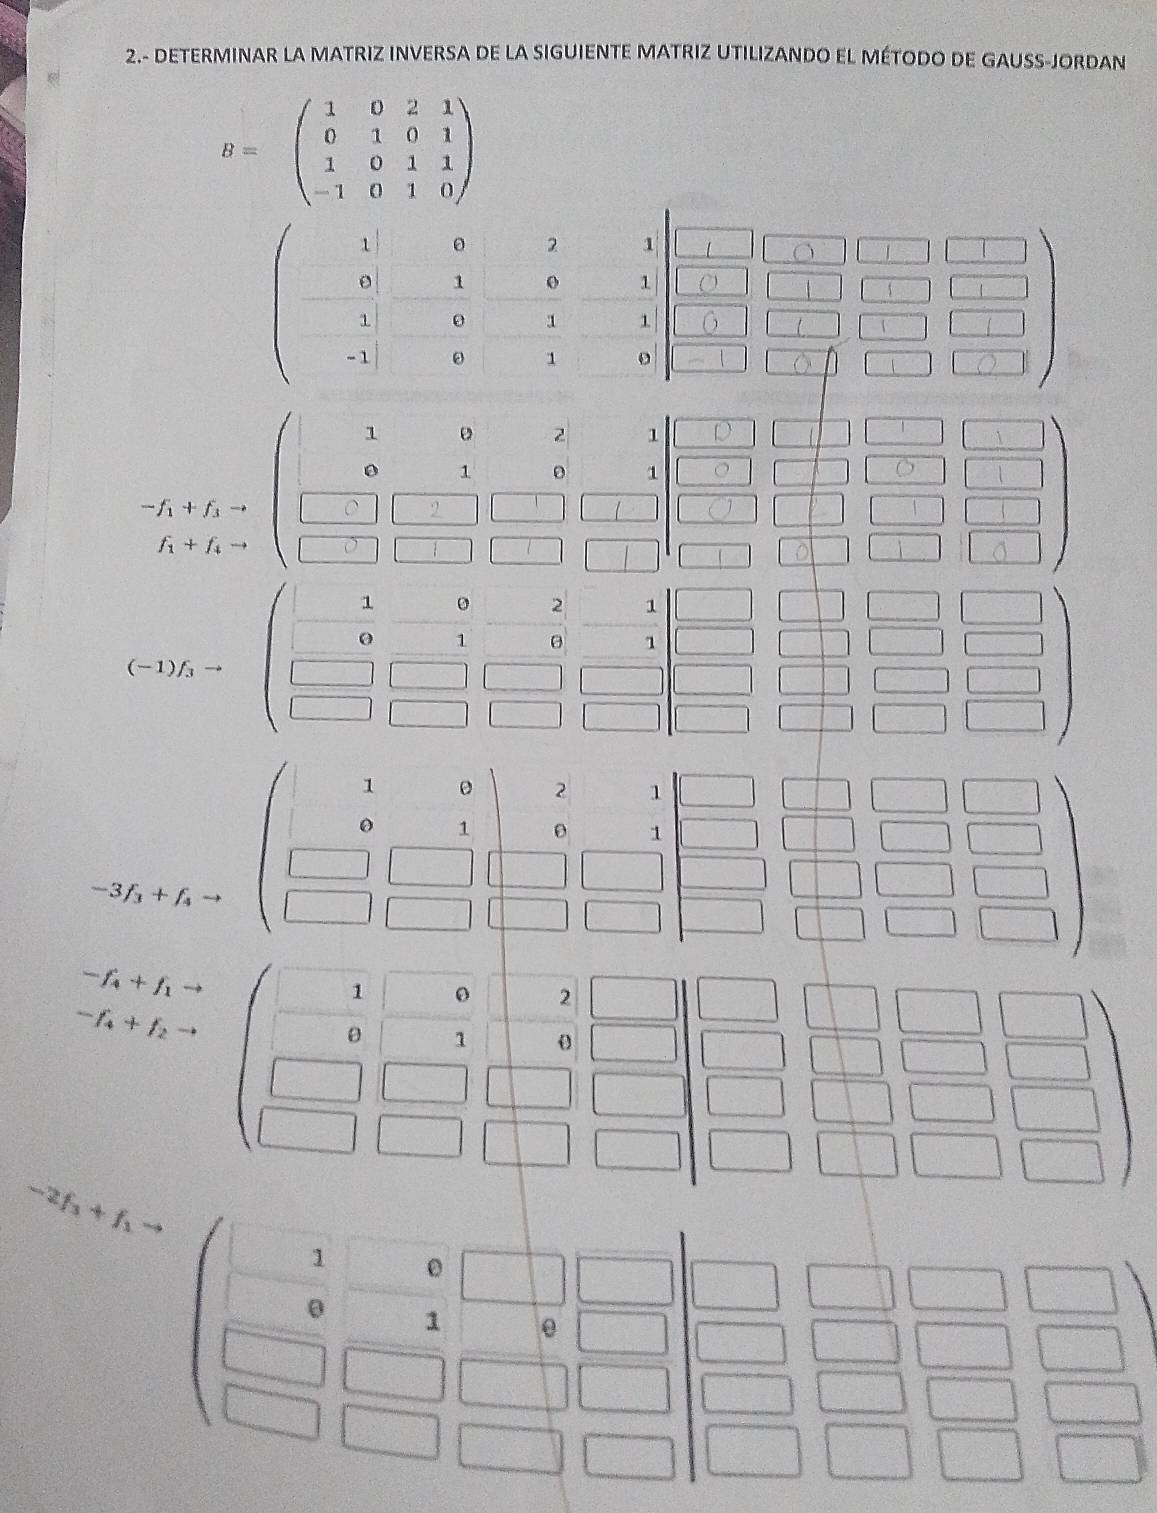 2.- DETERMINAR LA MATRIZ INVERSA DE LA SIGUIENTE MATRIZ UTILIZANDO EL MÉTODO DE GAUSS-JORDAN
1 0 2 1
0 1 0 1
B =
1 0 1 1
-1 0 1 0
1 0 2 1 1 0 1 1
0 1 0 1 0 1 1 1
1 0 1 1 0 1 1 1
-1 0 1 0 -1 0 1 0
1 0 2 1 0 1 1 1
0 1 0 1 0 0 1
-f₁ + f₃ → 0 2 1 1 0 1 1
f₁ + f₄ → 0 1 1 1 1 0 1 0
1 0 2 1
0 1 0 1
(-1)f₃ →
1 0 2 1
0 1 0 1
-3f₃ + f₄ →
-f₄ + f₁ → 1 0 2
-f₄ + f₂ → 0 1 0
-2f₃ + f₁ →
1 0
0 1 0